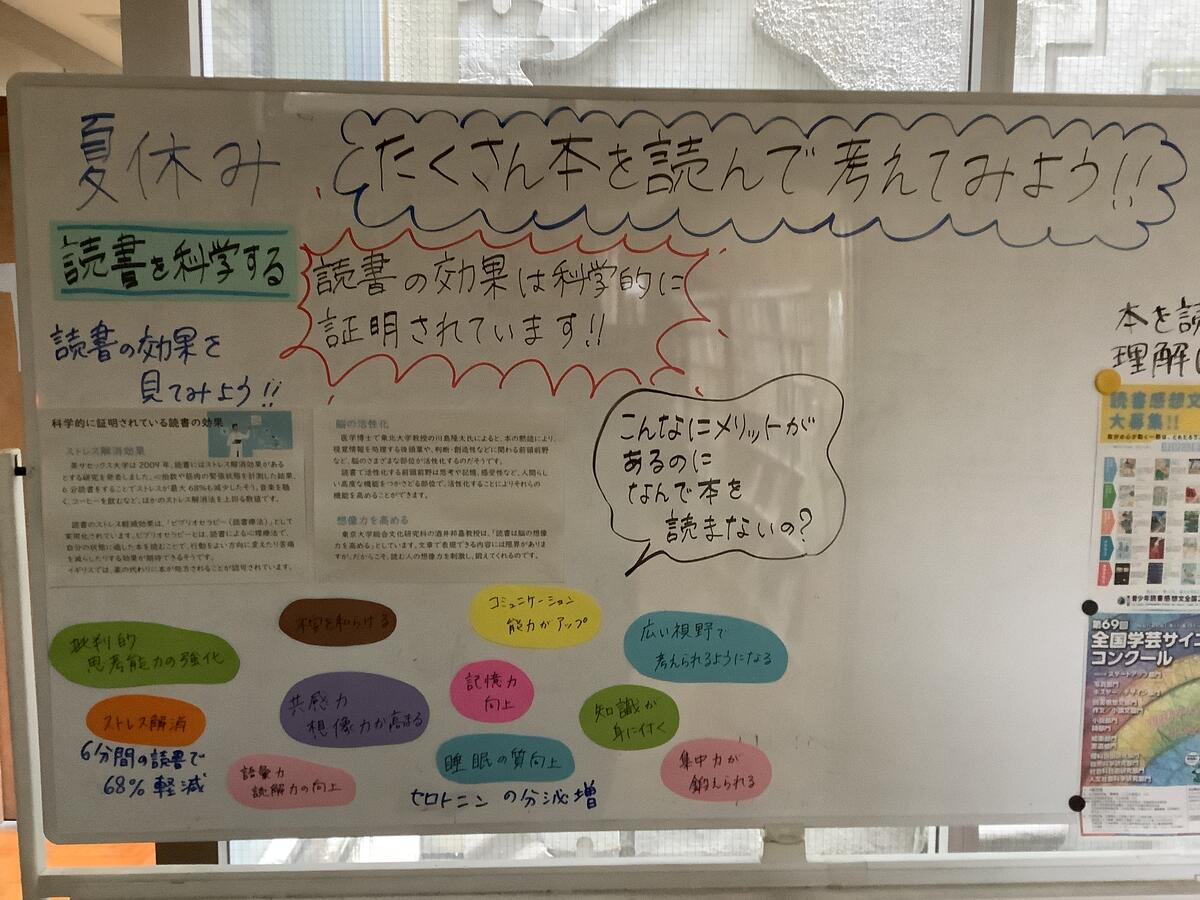 夏休み
たくさん本を読んで考えてみよう!!
読書を科学する
読書の効果は科学的に
証明されています!!
読書の効果を
見てみよう!!
科学的に証明されている読書の効果
ストレス解消効果
英サセックス大学は2009年、読書にはストレス解消効果がある
とする研究を発表しました。心拍数や筋肉の緊張状態を計測した結果、
6分読書をすることでストレスが最大68%も減少したそう。音楽を聴
く、コーヒーを飲むなど、ほかのストレス解消法を上回る数値です。
読書のストレス軽減効果は、「ビブリオセラピー(読書療法)」として
実用化されています。ビブリオセラピーとは、読書による心理療法で、
自分の状態に適した本を読むことで、行動をよい方向に変えたり苦痛
を減らしたりする効果が期待できるそうです。
イギリスでは、薬の代わりに本が処方されることが認可されています。
脳の活性化
医学博士で東北大学教授の川島隆太氏によると、本の黙読により、
視覚情報を処理する後頭葉や、判断・創造性などに関わる前頭前野
など、脳のさまざまな部位が活性化するのだそうです。
読書で活性化する前頭前野は思考や記憶、感受性など、人間らし
い高度な機能をつかさどる部位で、活性化することによりそれらの
機能を高めることができます。
想像力を高める
東京大学総合文化研究科の酒井邦嘉教授は、「読書は脳の想像
力を高める」としています。文章で表現できる内容には限界がありま
すが、だからこそ、読む人の想像力を刺激し、鍛えてくれるのです。
こんなにメリットが
あるのに
なんで本を
読まないの?
批判的
思考能力の強化
不安を和らげる
コミュニケーション
能力がアップ
広い視野で
考えられるようになる
ストレス解消
6分間の読書で
68%軽減
共感力
想像力が高まる
記憶力
向上
知識が
身に付く
語彙力
読解力の向上
睡眠の質向上
セロトニンの分泌増
集中力が
鍛えられる
本を読
理解
読書感想文
大募集!!
青少年読書感想文全国コ
第69回
全国学芸サイエ
コンクール